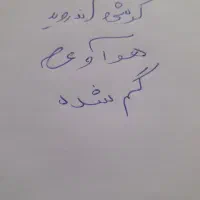 گوشی اندروید
هوآوی
گم شده